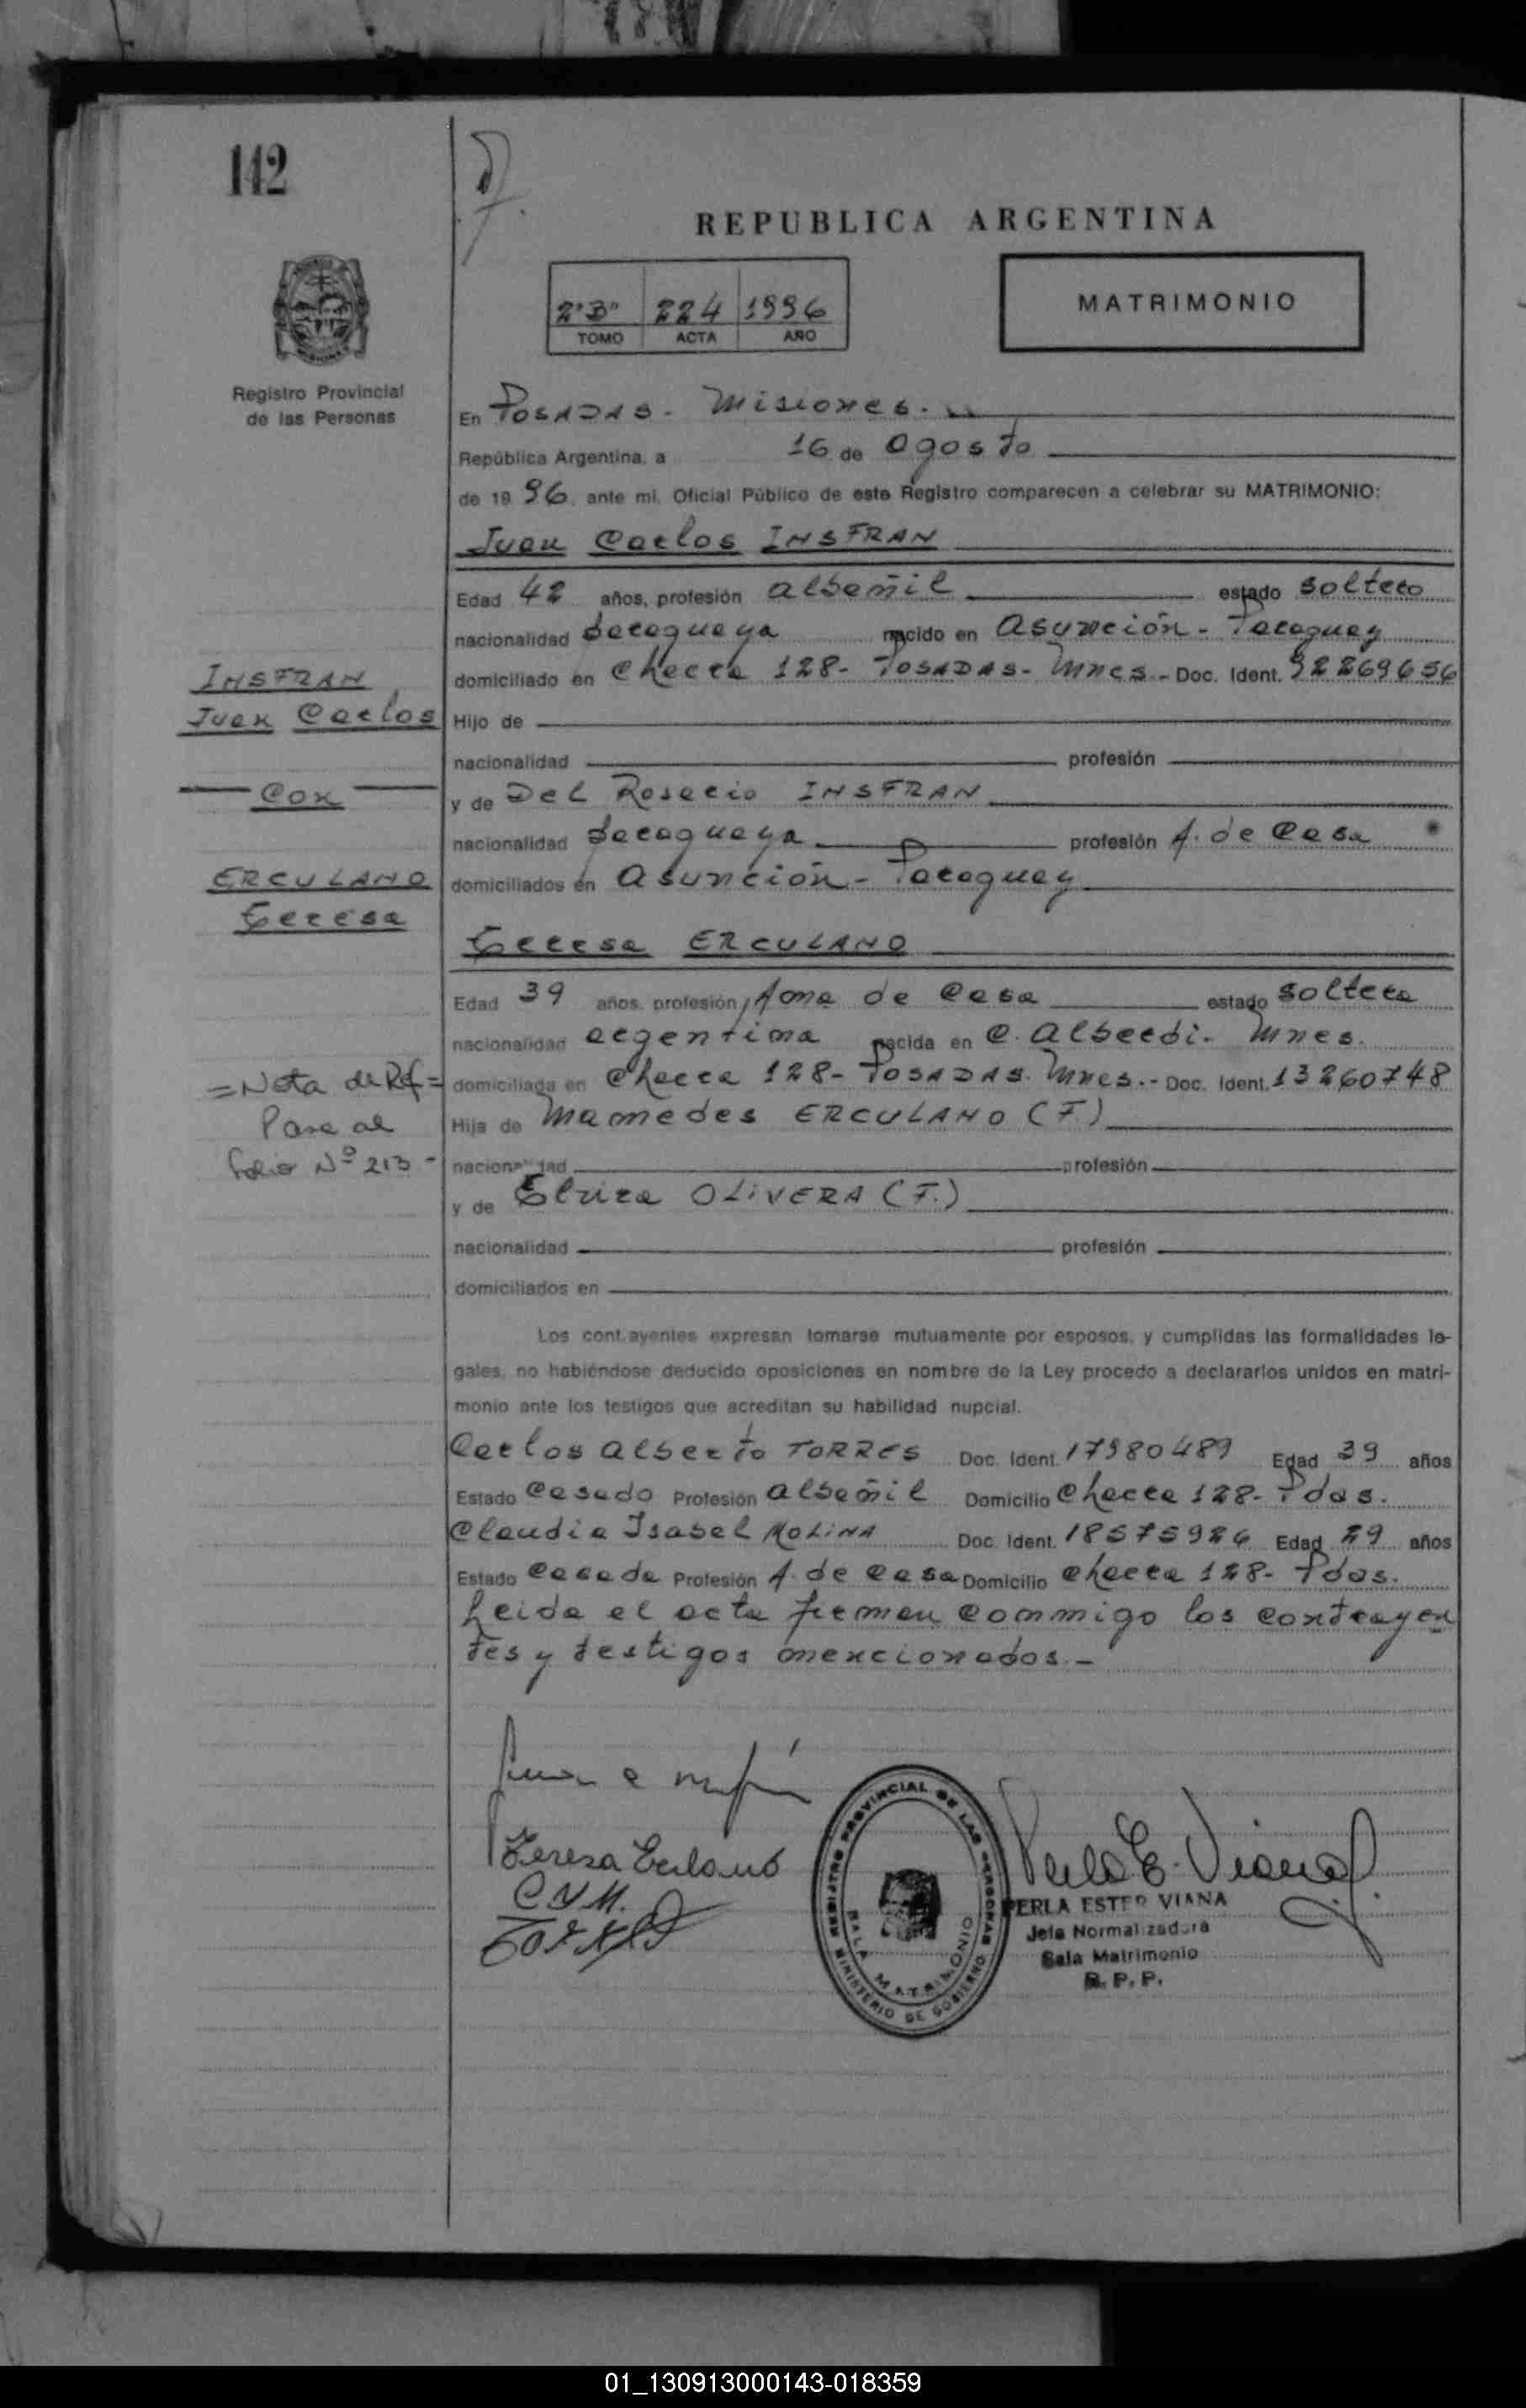 142
REPUBLICA ARGENTINA
2°B" 224 1996
TOMO ACTA AÑO
MATRIMONIO
Registro Provincial
de las Personas
En POSADAS - Misiones.
República Argentina, a 16 de Agosto
de 1996, ante mi, Oficial Público de este Registro comparecen a celebrar su MATRIMONIO:
Juan Carlos INSFRAN
Edad 42 años, profesión albañil estado soltero
nacionalidad paraguaya nacido en Asunción - Paraguay
domiciliado en Checra 128 - POSADAS - Mnes. - Doc. Ident. 92269656
INSFRAN
Juan Carlos
Hijo de
nacionalidad profesión
Con
y de Del Rosario INSFRAN
nacionalidad paraguaya profesión A. de Casa
ERCULANO
Teresa
domiciliados en Asunción - Paraguay
Teresa ERCULANO
Edad 39 años, profesión Ama de Casa estado soltera
nacionalidad argentina nacida en C. Alberdi - Mnes.
= Nota de Ref =
Pase al
folio Nº 213 -
domiciliada en Checra 128 - POSADAS. Mnes. - Doc. Ident. 13260748
Hija de Mamedes ERCULANO (F)
nacionalidad profesión
y de Elvira OLIVERA (F.)
nacionalidad profesión
domiciliados en
Los contrayentes expresan tomarse mutuamente por esposos, y cumplidas las formalidades le-
gales, no habiéndose deducido oposiciones en nombre de la Ley procedo a declararlos unidos en matri-
monio ante los testigos que acreditan su habilidad nupcial.
Carlos Alberto TORRES Doc. Ident. 17980489 Edad 39 años
Estado Casado Profesión albañil Domicilio Checra 128 - Pdas.
Claudia Isabel MOLINA Doc. Ident. 18575926 Edad 29 años
Estado Casada Profesión A. de Casa Domicilio Checra 128 - Pdas.
Leida el acta firman conmigo los contrayen
tes y testigos mencionados. -
Teresa
C Y M.
REGISTRO PROVINCIAL DE LAS PERSONAS
SALA MATRIMONIO
MINISTERIO DE GOBIERNO
Perla E. Viana
PERLA ESTER VIANA
Jefa Normalizadora
Sala Matrimonio
R. P. P.
01_130913000143-018359